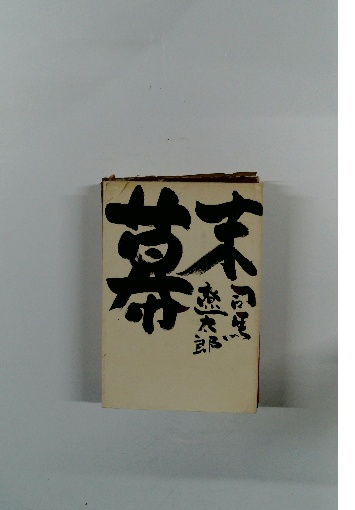 幕末
司馬
遼太郎